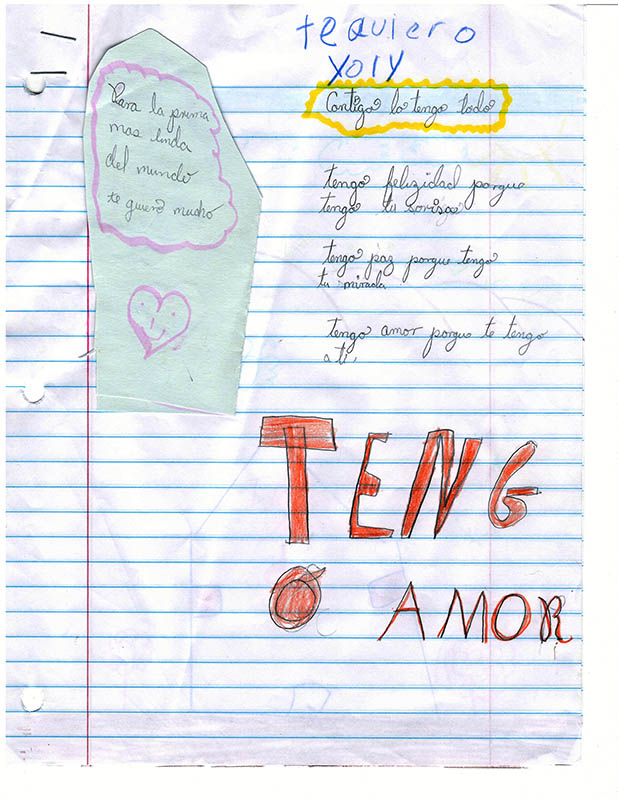 te quiero
yoly
Contigo lo tengo todo
Para la prima
mas linda
del mundo
te quiero mucho
tengo felizidad porque
tengo tu sorisa
tengo paz porque tengo
tu mirada
tengo amor porque te tengo
a ti,
TENG
O AMOR